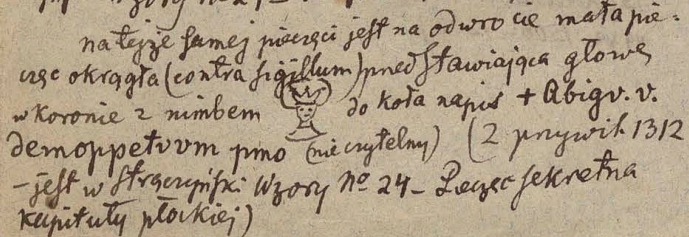 na tejże samej pieczęci jest na odwrocie mała pie=
częc okrągła (contra sigillum) przedstawiająca głowę
w koronie z nimbem do koła napis + Abigv. v.
demoppetvvm pmo (nieczytelny) (z przywil. 1312
- jest w Stręczyński Wzory No 24 - Pieczęc sekretna
kapituły płockiej)